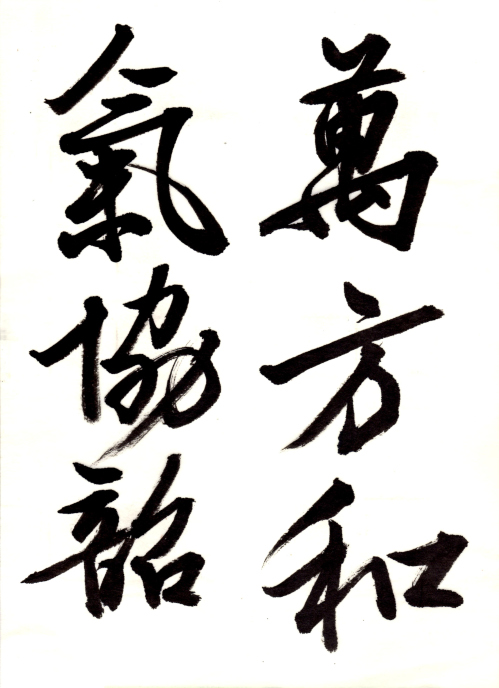 萬方和
氣協韶